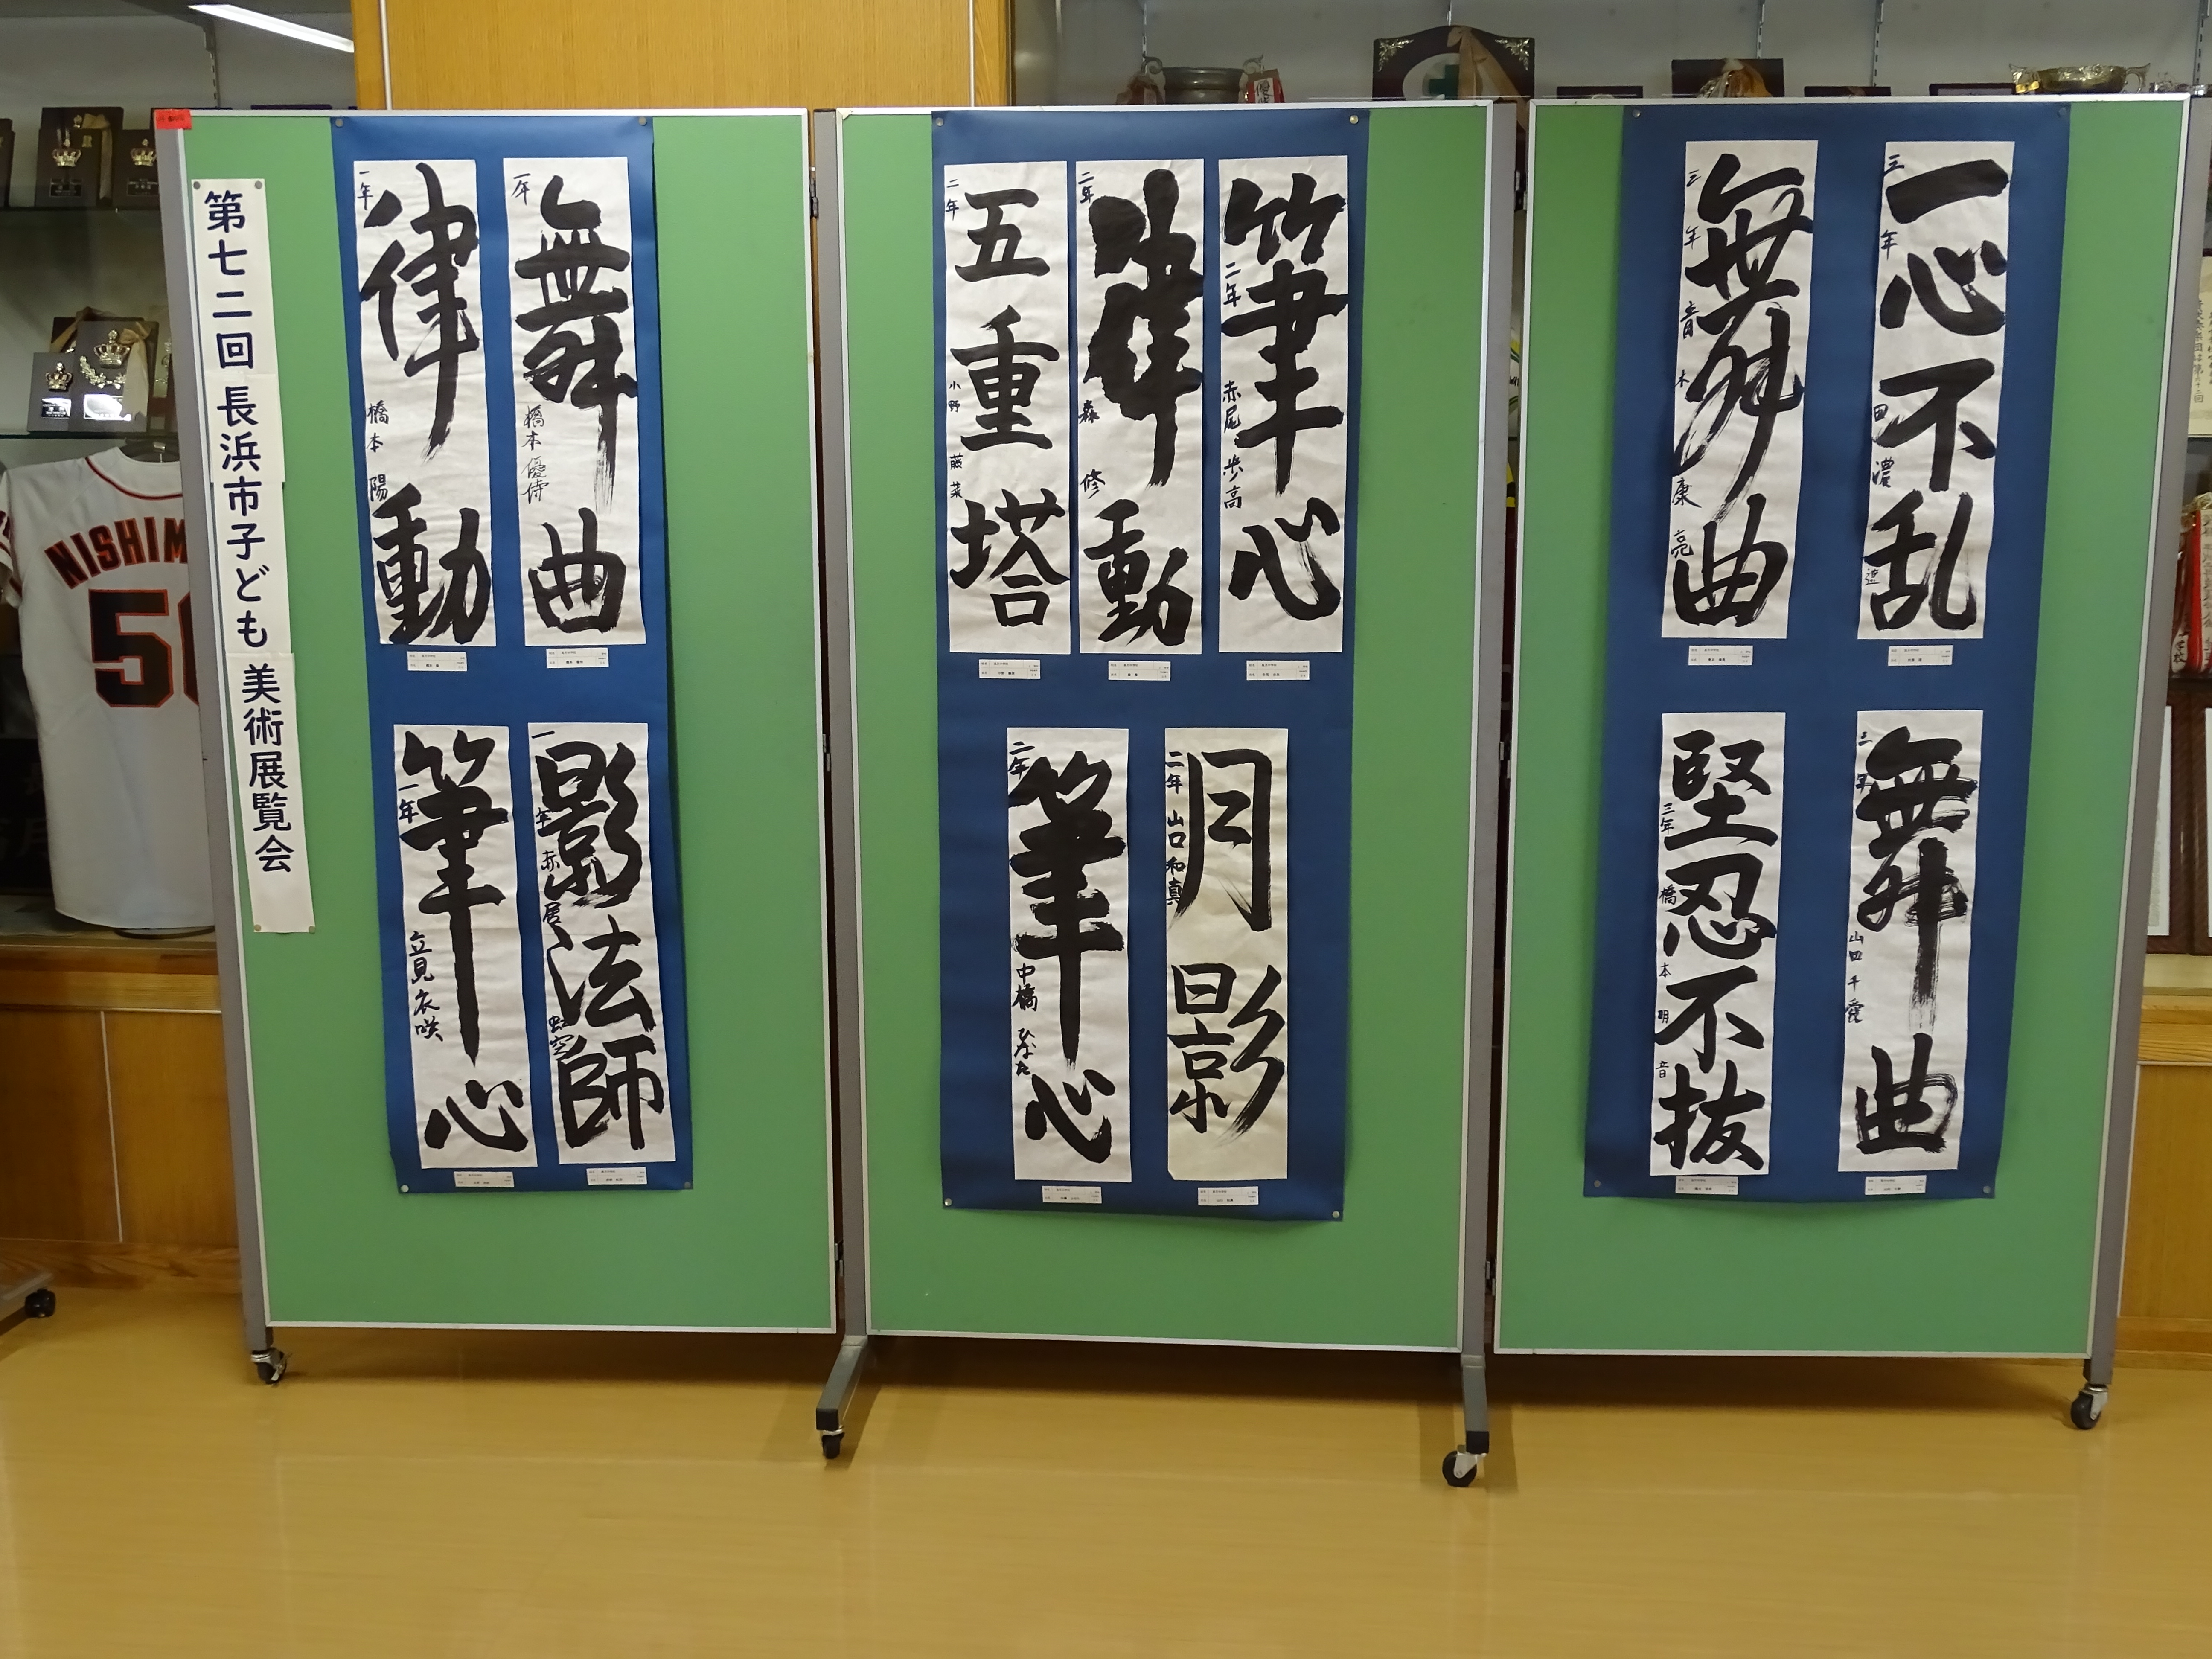 第七二回 長浜市子ども 美術展覧会
舞曲
一年 橋本優侍
律動
一年 橋本 陽
影法師
一年 赤居 虹空
筆心
一年 立見衣咲
筆心
二年 赤尾 歩高
律動
二年 森 修
五重塔
二年 小野 藤菜
月影
二年 山口和真
筆心
二年 中橋 ひなた
一心不乱
三年 田濃
舞曲
三年 青木康亮
舞曲
三年 山田千愛
堅忍不抜
三年 橋本明音
NISHIM
5